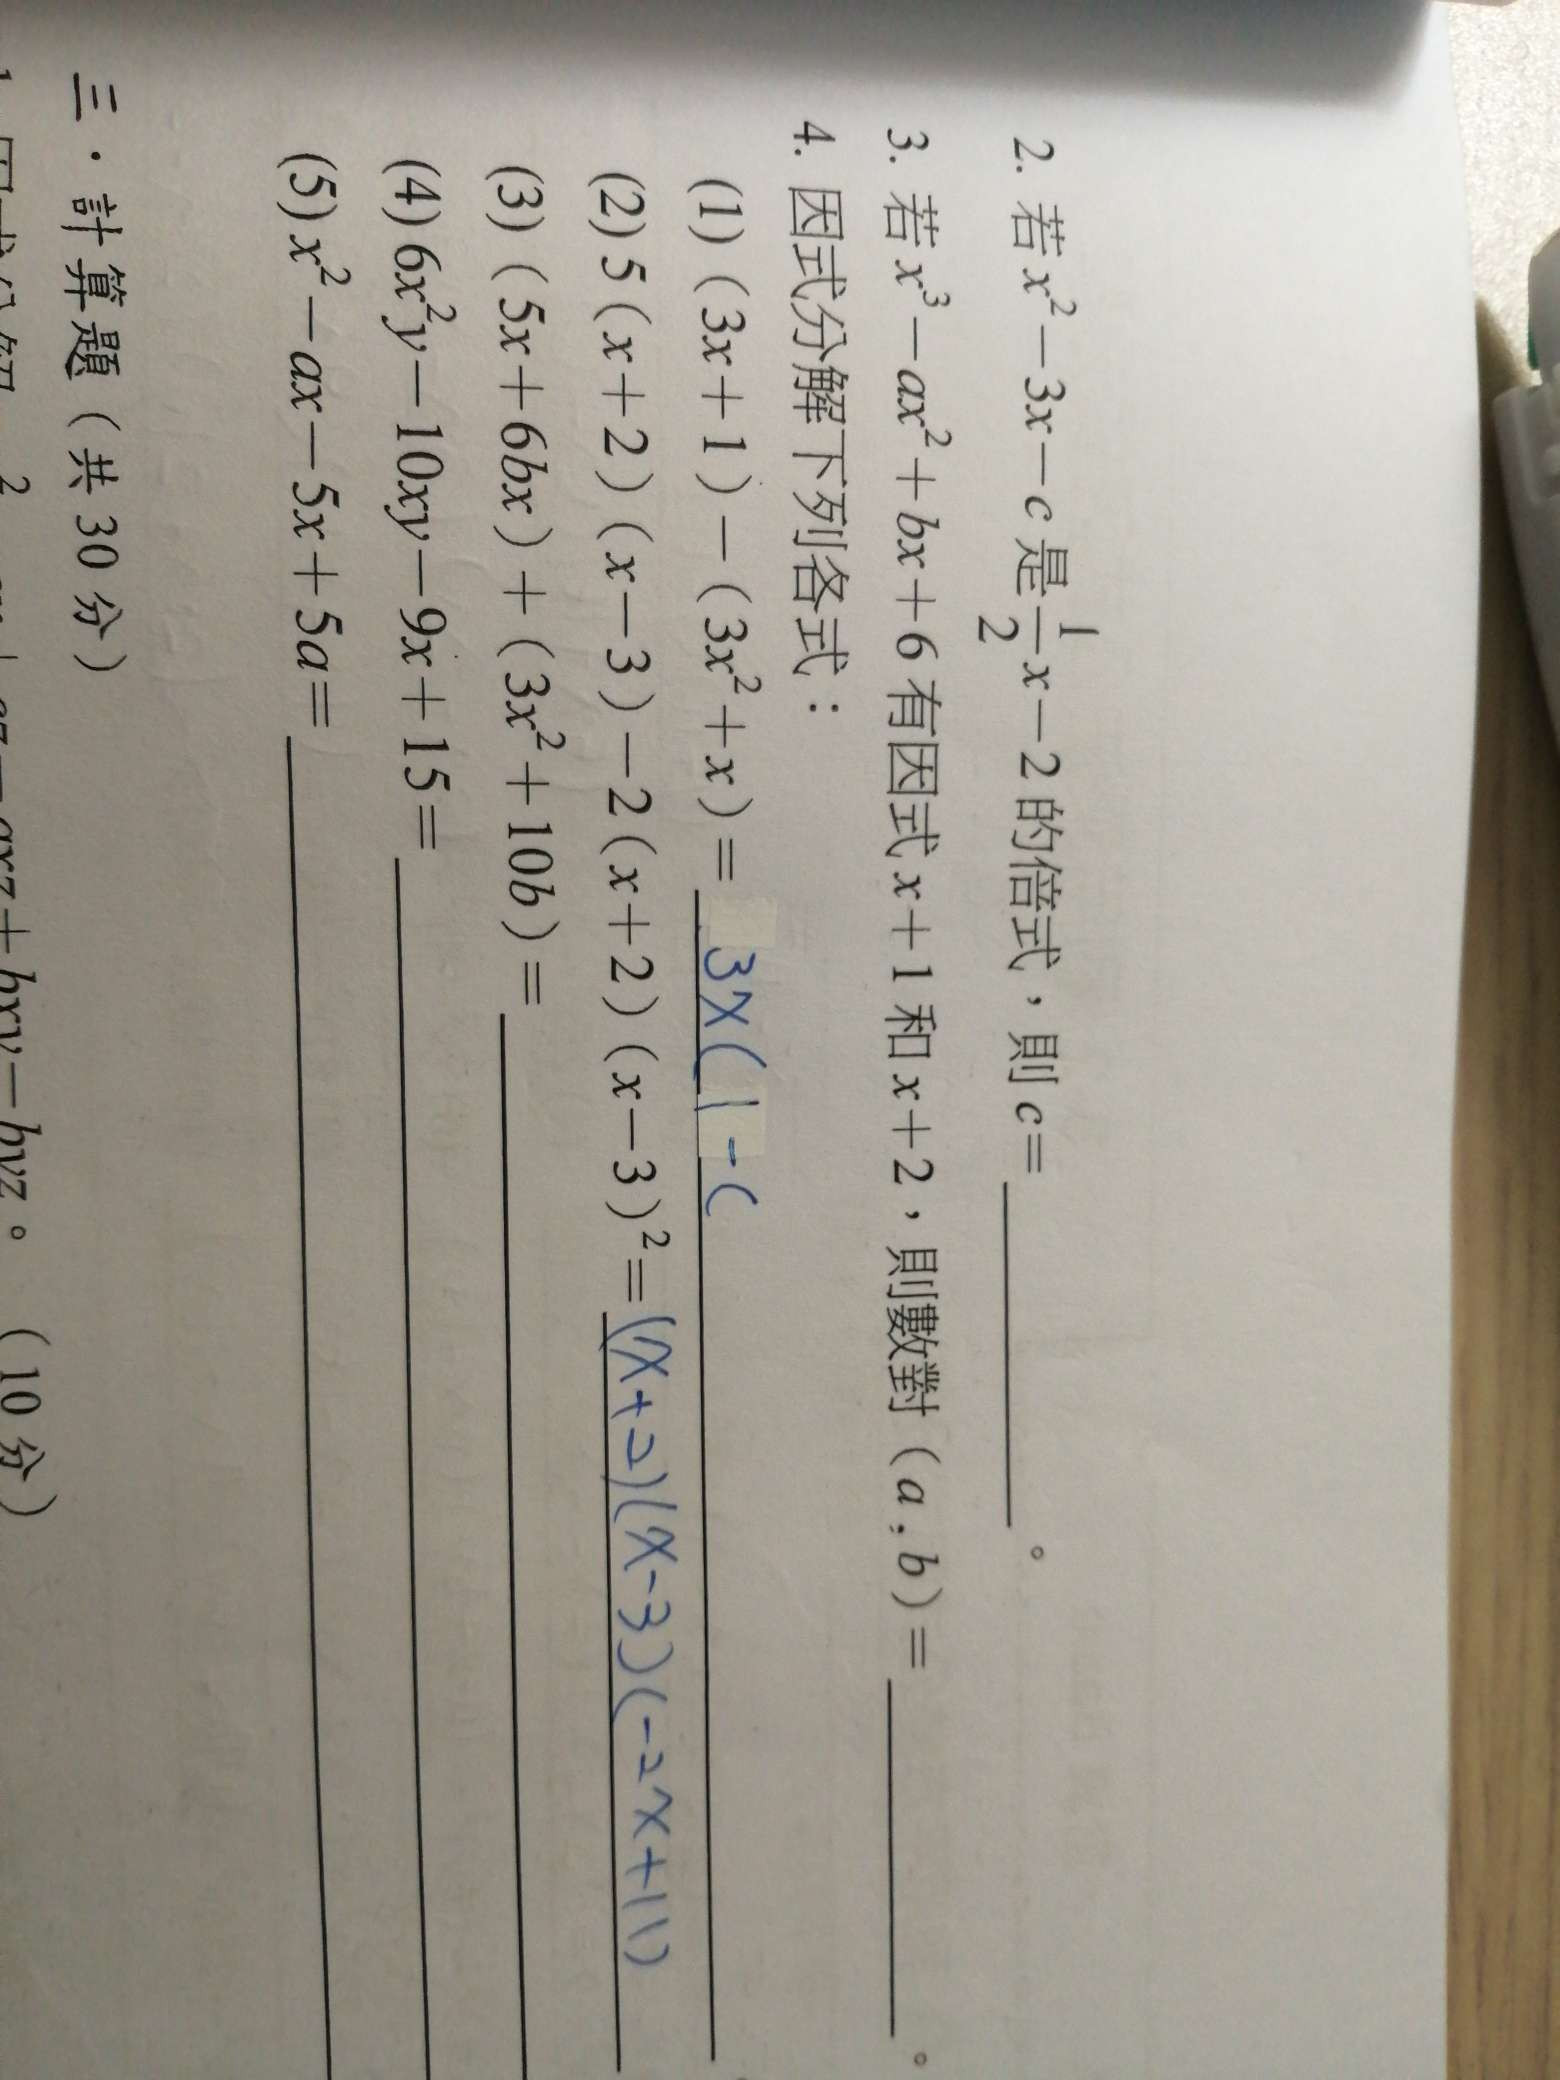 2. 若 x²－3x－c 是 1/2 x－2 的倍式，則 c＝＿＿＿＿。
3. 若 x³－ax²＋bx＋6 有因式 x＋1 和 x＋2，則數對（a , b）＝＿＿＿＿。
4. 因式分解下列各式：
(1)（3x＋1）－（3x²＋x）＝ 3x(1-(
(2) 5（x＋2）（x－3）－2（x＋2）（x－3）²＝(x+2)(x-3)(-2x+11)
(3)（5x＋6bx）＋（3x²＋10b）＝
(4) 6x²y－10xy－9x＋15＝
(5) x²－ax－5x＋5a＝
三．計算題（共 30 分）
1. 因式分解 －axz＋bxy－byz。（10 分）